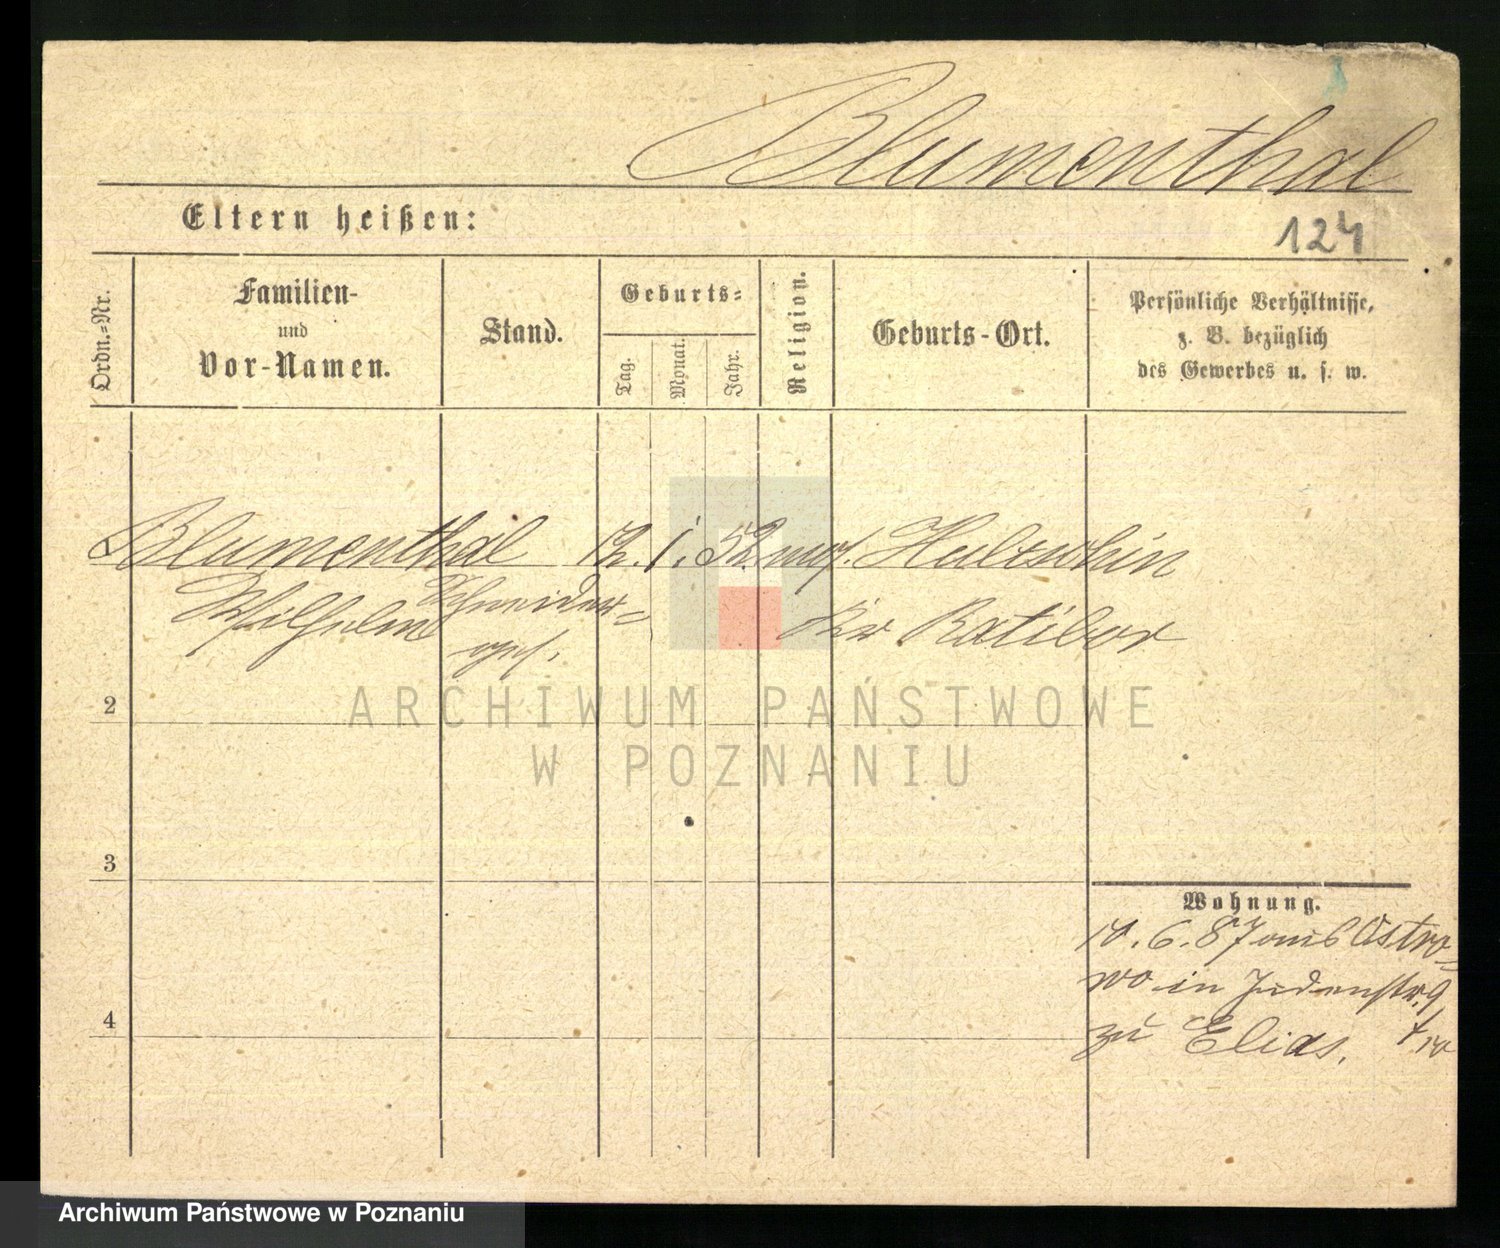 Blumenthal
Eltern heißen:
124
Ordn.-Nr.
Familien-
und
Vor-Namen.
Stand.
Geburts-
Tag.
Monat.
Jahr.
Religion.
Geburts-Ort.
Persönliche Verhältnisse,
z. B. bezüglich
des Gewerbes u. s. w.
Blumenthal 12. 1. 52. mos. Hultschin
Wilhelm Schneider-
ges. Ratibor
2
ARCHIWUM PAŃSTWOWE
W POZNANIU
3
Wohnung.
10. 6. 87 aus Ostro-
wo in Judenstr. 9
4
zu Elias.
Archiwum Państwowe w Poznaniu